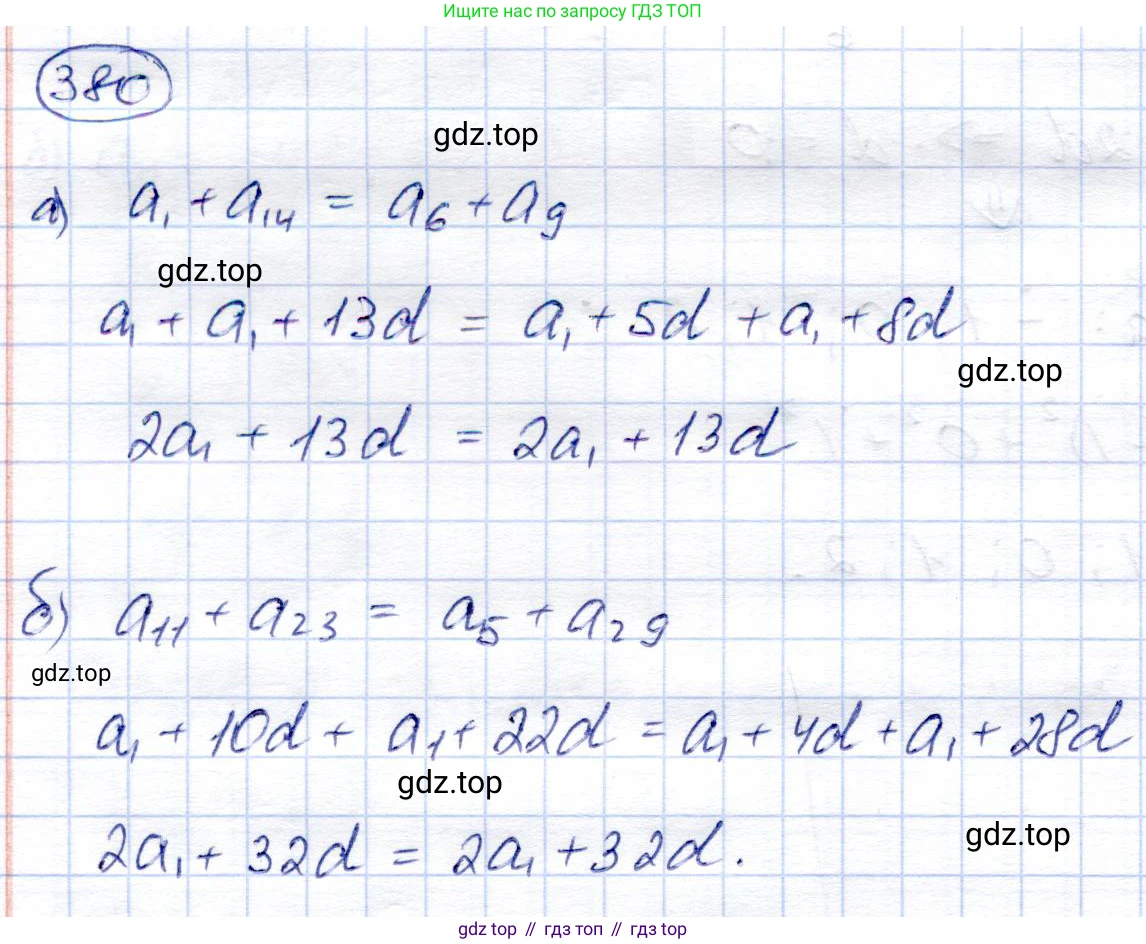 Ищите нас по запросу ГДЗ ТОП
380
gdz.top
а) a₁ + a₁₄ = a₆ + a₉
gdz.top
a₁ + a₁ + 13d = a₁ + 5d + a₁ + 8d
gdz.top
2a₁ + 13d = 2a₁ + 13d
б) a₁₁ + a₂₃ = a₅ + a₂₉
gdz.top
a₁ + 10d + a₁ + 22d = a₁ + 4d + a₁ + 28d
gdz.top
2a₁ + 32d = 2a₁ + 32d.
gdz.top
gdz top // гдз топ // гdz top